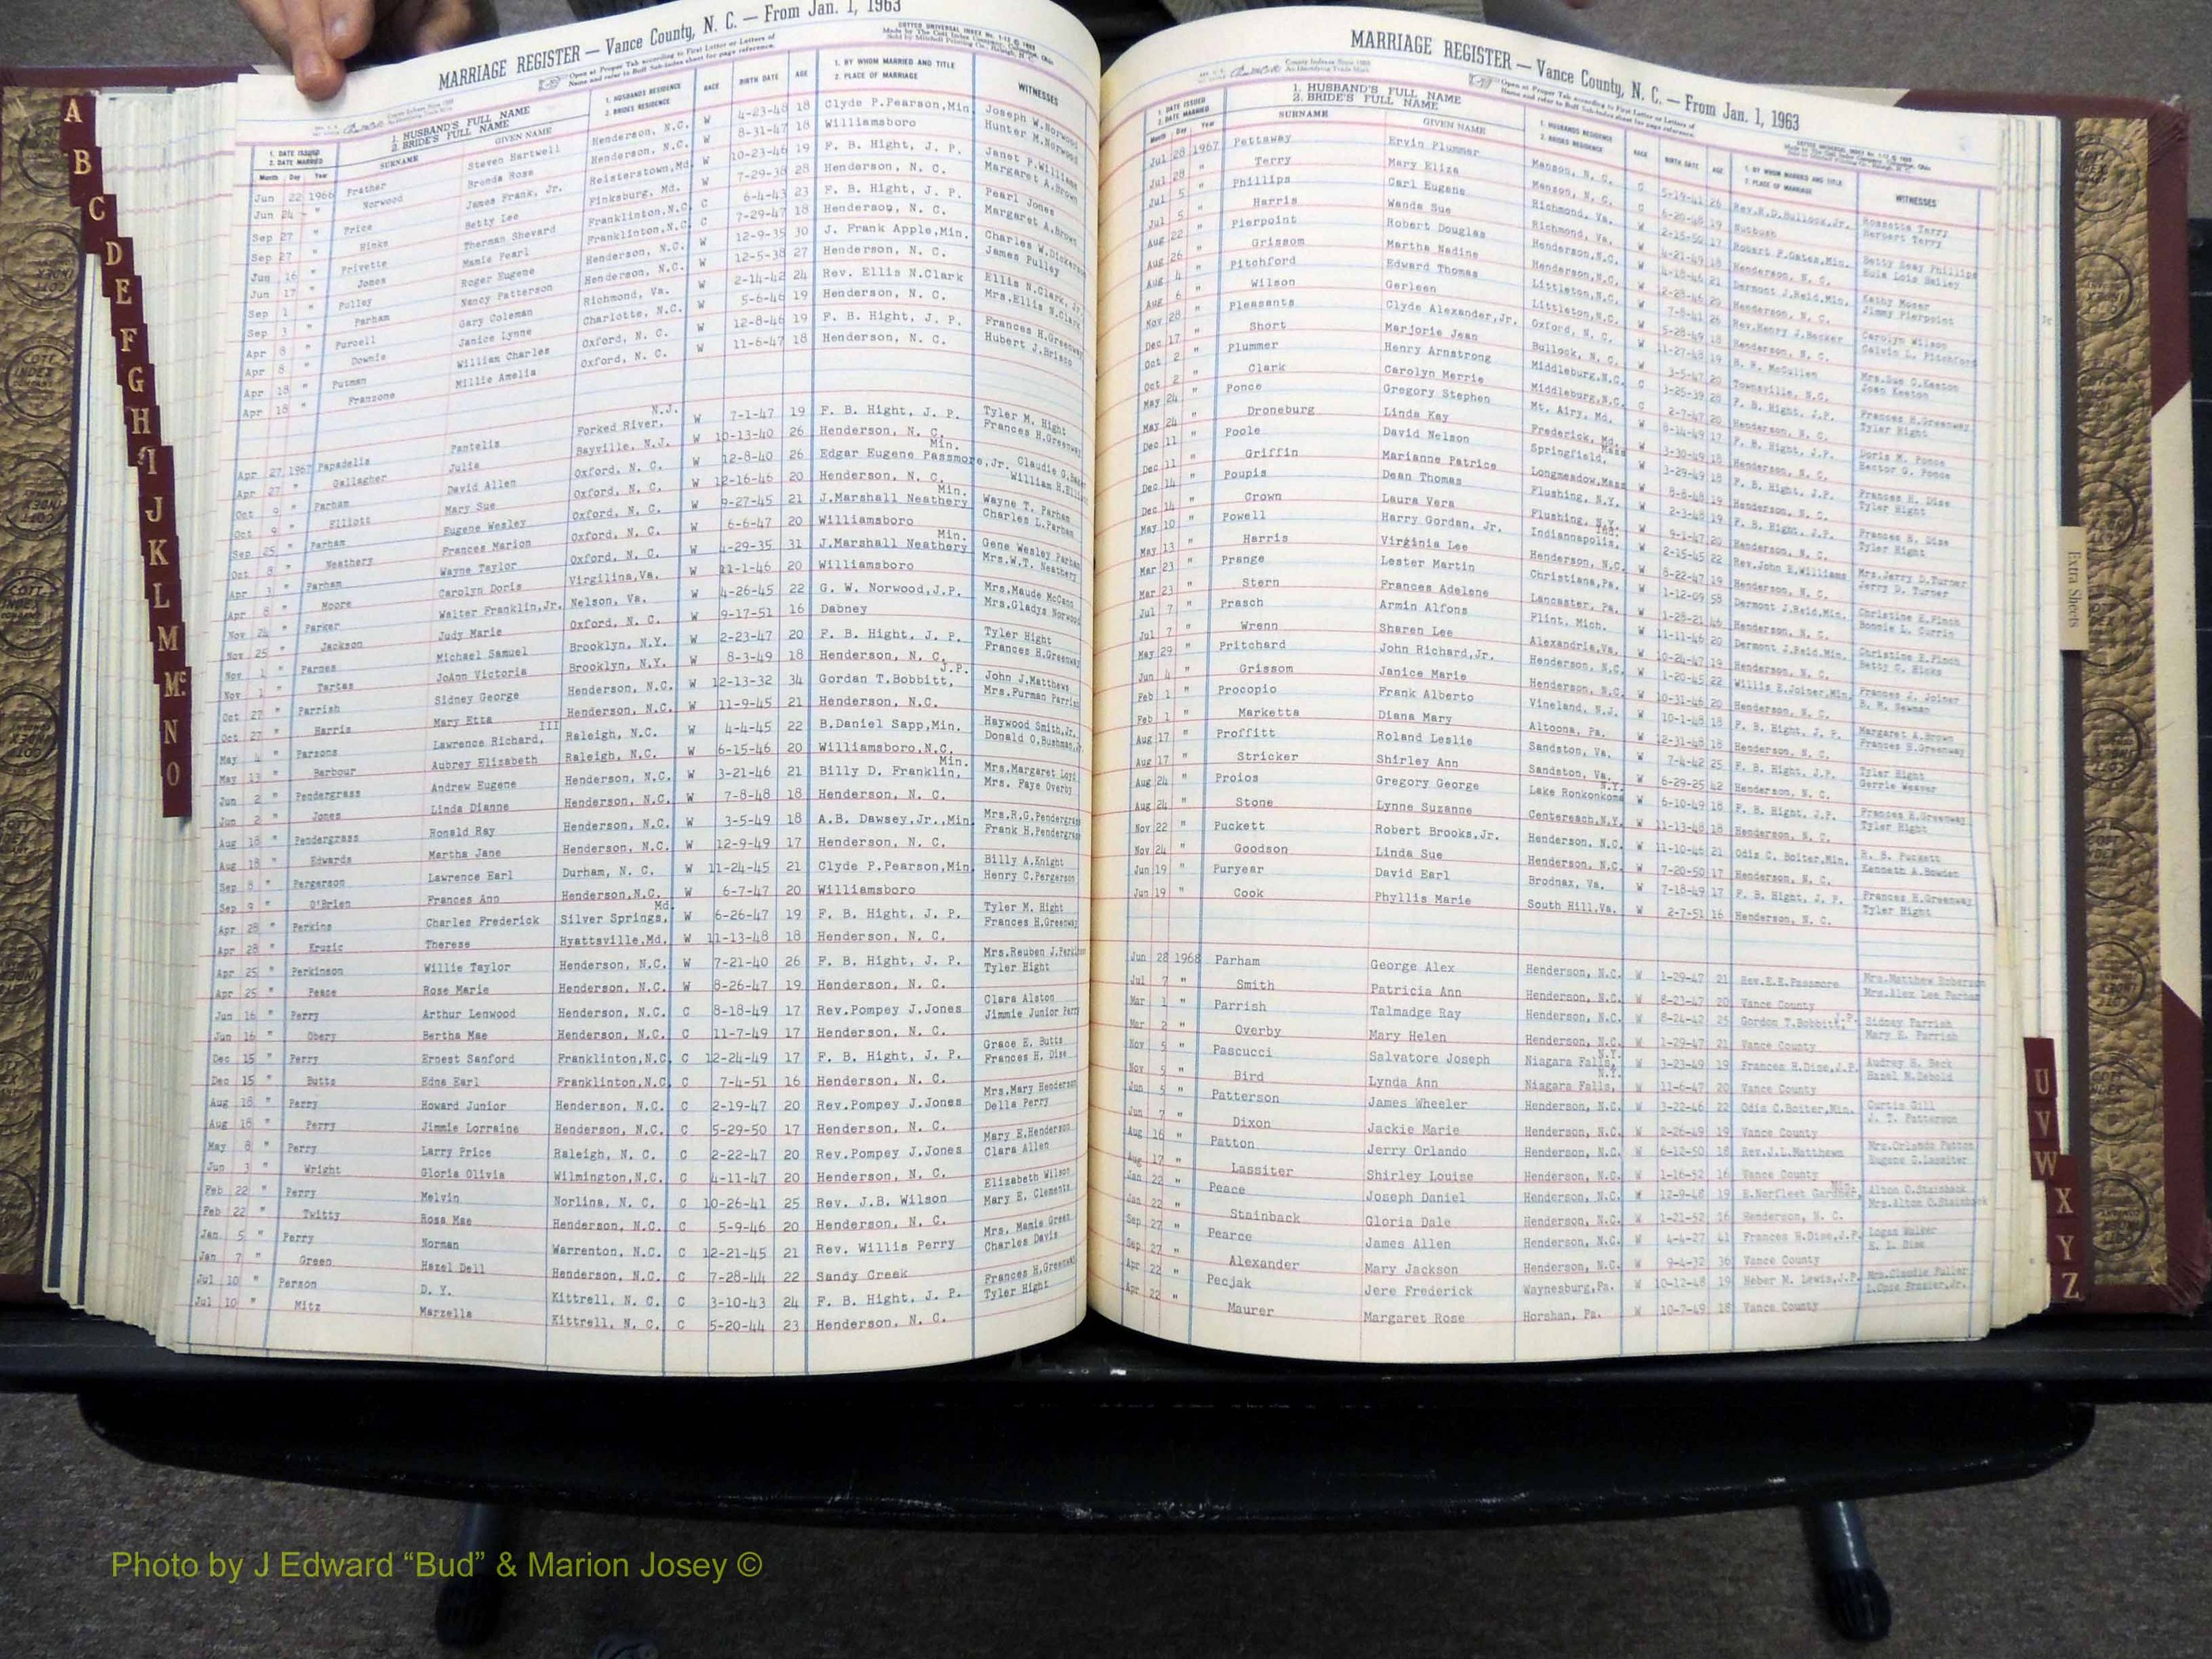 MARRIAGE REGISTER — Vance County, N. C. — From Jan. 1, 1963
Open at Proper Tab according to First Letter or Letters of
Name and refer to Buff Sub-Index sheet for page reference.
1. DATE ISSUED
2. DATE MARRIED
Month Day Year
1. HUSBAND'S FULL NAME
2. BRIDE'S FULL NAME
SURNAME GIVEN NAME
1. HUSBANDS RESIDENCE
2. BRIDES RESIDENCE
RACE BIRTH DATE AGE
1. BY WHOM MARRIED AND TITLE
2. PLACE OF MARRIAGE
WITNESSES
Jun 22 1966 Prather Steven Hartwell Henderson, N.C. W 4-23-48 18 Clyde P.Pearson,Min. Joseph W.Norwood
Jun 24 " Norwood Brenda Rose Henderson, N.C. W 8-31-47 18 Williamsboro Hunter M.Norwood
Sep 27 " Price James Frank, Jr. Reisterstown,Md. W 10-23-46 19 F. B. Hight, J. P. Janet P.Williams
Sep 27 " Hinks Betty Lee Finksburg, Md. W 7-29-38 28 Henderson, N. C. Margaret A.Brown
Jun 16 " Privette Therman Shevard Franklinton,N.C. C 6-4-43 23 F. B. Hight, J. P. Pearl Jones
Jun 17 " Jones Mamie Pearl Franklinton,N.C. C 7-29-47 18 Henderson, N. C. Margaret A.Brown
Sep 1 " Pulley Roger Eugene Henderson, N.C. W 12-9-35 30 J. Frank Apple,Min. Charles W.Dickerson
Sep 3 " Parham Nancy Patterson Henderson, N.C. W 12-5-38 27 Henderson, N. C. James Pulley
Apr 8 " Purcell Gary Coleman Richmond, Va. W 2-14-42 24 Rev. Ellis N.Clark Ellis N.Clark, Jr.
Apr 8 " Downie Janice Lynne Charlotte, N.C. W 5-6-46 19 Henderson, N. C. Mrs.Ellis N.Clark
Apr 18 " Putman William Charles Oxford, N. C. W 12-8-46 19 F. B. Hight, J. P. Frances H.Greenway
Apr 18 " Franzone Millie Amelia Oxford, N. C. W 11-6-47 18 Henderson, N. C. Hubert J.Brisco
Apr 27 1967 Papadelis Pantelis Forked River, N.J. W 7-1-47 19 F. B. Hight, J. P. Tyler M. Hight
Apr 27 " Gallagher Julia Bayville, N.J. W 10-13-40 26 Henderson, N. C. Frances H.Greenway
Oct 9 " Parham David Allen Oxford, N. C. W 12-8-40 26 Edgar Eugene Passmore,Jr. Min. Claudie G.
Oct 9 " Elliott Mary Sue Oxford, N. C. W 12-16-46 20 Henderson, N. C. William H.Elliott
Sep 25 " Parham Eugene Wesley Oxford, N. C. W 9-27-45 21 J.Marshall Neathery Min. Wayne T. Parham
Oct 8 " Neathery Frances Marion Oxford, N. C. W 6-6-47 20 Williamsboro Charles L.Parham
Apr 3 " Parham Wayne Taylor Oxford, N. C. W 4-29-35 31 J.Marshall Neathery Min. Gene Wesley Parham
Apr 8 " Moore Carolyn Doris Virgilina,Va. W 11-1-46 20 Williamsboro Mrs.W.T. Neathery
Nov 24 " Parker Walter Franklin,Jr. Nelson, Va. W 4-26-45 22 G. W. Norwood,J.P. Mrs.Maude McCann
Nov 25 " Jackson Judy Marie Oxford, N. C. W 9-17-51 16 Dabney Mrs.Gladys Norwood
Nov 1 " Parnes Michael Samuel Brooklyn, N.Y. W 2-23-47 20 F. B. Hight, J. P. Tyler Hight
Nov 1 " Tartas JoAnn Victoria Brooklyn, N.Y. W 8-3-49 18 Henderson, N. C. Frances H.Greenway
Oct 27 " Parrish Sidney George Henderson, N.C. W 12-13-32 34 Gordon T.Bobbitt, J.P. John J.Matthews
Oct 27 " Harris Mary Etta Henderson, N.C. W 11-9-45 21 Henderson, N.C. Mrs.Furman Parrish
May 4 " Parsons Lawrence Richard, III Raleigh, N.C. W 4-4-45 22 B.Daniel Sapp,Min. Haywood Smith,Jr.
May 13 " Barbour Aubrey Elizabeth Raleigh, N.C. W 6-15-46 20 Williamsboro,N.C. Donald O.Bushman,Jr.
Jun 2 " Pendergrass Andrew Eugene Henderson, N.C. W 3-21-46 21 Billy D. Franklin, Min. Mrs.Margaret Loyd
Jun 2 " Jones Linda Dianne Henderson, N.C. W 7-8-48 18 Henderson, N. C. Mrs. Faye Overby
Aug 18 " Pendergrass Ronald Ray Henderson, N.C. W 3-5-49 18 A.B. Dawsey,Jr.,Min. Mrs.R.G.Pendergrass
Aug 18 " Edwards Martha Jane Henderson, N.C. W 12-9-49 17 Henderson, N. C. Frank H.Pendergrass
Sep 8 " Pergerson Lawrence Earl Durham, N. C. W 11-24-45 21 Clyde P.Pearson,Min. Billy A.Knight
Sep 9 " O'Brien Frances Ann Henderson,N.C. W 6-7-47 20 Williamsboro Henry C.Pergerson
Apr 28 " Perkins Charles Frederick Silver Springs, Md. W 6-26-47 19 F. B. Hight, J. P. Tyler M. Hight
Apr 28 " Kruzic Therese Hyattsville,Md. W 11-13-48 18 Henderson, N. C. Frances H.Greenway
Apr 25 " Perkinson Willie Taylor Henderson, N.C. W 7-21-40 26 F. B. Hight, J. P. Mrs.Reuben J.Perkinson
Apr 25 " Pease Rose Marie Henderson, N.C. W 8-26-47 19 Henderson, N. C. Tyler Hight
Jun 16 " Perry Arthur Lenwood Henderson, N.C. C 8-18-49 17 Rev.Pompey J.Jones Clara Alston
Jun 16 " Obery Bertha Mae Henderson, N.C. C 11-7-49 17 Henderson, N. C. Jimmie Junior Perry
Dec 15 " Perry Ernest Sanford Franklinton,N.C. C 12-24-49 17 F. B. Hight, J. P. Grace E. Butts
Dec 15 " Butts Edna Earl Franklinton,N.C. C 7-4-51 16 Henderson, N. C. Frances H. Dise
Aug 18 " Perry Howard Junior Henderson, N.C. C 2-19-47 20 Rev.Pompey J.Jones Mrs.Mary Henderson
Aug 18 " Perry Jimmie Lorraine Henderson, N.C. C 5-29-50 17 Henderson, N. C. Della Perry
May 8 " Perry Larry Price Raleigh, N. C. C 2-22-47 20 Rev.Pompey J.Jones Mary E.Henderson
Jun 3 " Wright Gloria Olivia Wilmington,N.C. C 4-11-47 20 Henderson, N. C. Clara Allen
Feb 22 " Perry Melvin Norlina, N. C. C 10-26-41 25 Rev. J.B. Wilson Elizabeth Wilson
Feb 22 " Twitty Rosa Mae Henderson, N.C. C 5-9-46 20 Henderson, N. C. Mary E. Clements
Jan 5 " Perry Norman Warrenton, N.C. C 12-21-45 21 Rev. Willis Perry Mrs. Mamie Green
Jan 7 " Green Hazel Dell Henderson, N.C. C 7-28-44 22 Sandy Creek Charles Davis
Jul 10 " Person D. Y. Kittrell, N. C. C 3-10-43 24 F. B. Hight, J. P. Frances H.Greenway
Jul 10 " Mitz Marzella Kittrell, N. C. C 5-20-44 23 Henderson, N. C. Tyler Hight
MARRIAGE REGISTER — Vance County, N. C. — From Jan. 1, 1963
Open at Proper Tab according to First Letter or Letters of
Name and refer to Buff Sub-Index sheet for page reference.
1. DATE ISSUED
2. DATE MARRIED
Month Day Year
1. HUSBAND'S FULL NAME
2. BRIDE'S FULL NAME
SURNAME GIVEN NAME
1. HUSBANDS RESIDENCE
2. BRIDES RESIDENCE
RACE BIRTH DATE AGE
1. BY WHOM MARRIED AND TITLE
2. PLACE OF MARRIAGE
WITNESSES
Jul 28 1967 Pettaway Ervin Plummer Manson, N. C. C 5-19-41 26 Rev.R.D.Bullock,Jr. Rossetta Terry
Jul 28 " Terry Mary Eliza Manson, N. C. C 6-20-48 19 Nutbush Herbert Terry
Jul 5 " Phillips Carl Eugene Richmond, Va. W 2-15-50 17 Robert F.Gates,Min. Betty Seay Phillips
Jul 5 " Harris Wanda Sue Richmond, Va. W 4-21-49 18 Henderson, N. C. Eula Lois Bailey
Aug 22 " Pierpoint Robert Douglas Henderson,N.C. W 4-18-46 21 Dermont J.Reid,Min. Kathy Moser
Aug 26 " Grissom Martha Nadine Henderson,N.C. W 12-28-46 20 Henderson, N. C. Jimmy Pierpoint
Aug 4 " Pitchford Edward Thomas Littleton,N.C. W 7-8-41 26 Rev.Henry J.Hecker Carolyn Wilson
Aug 6 " Wilson Gerleen Littleton,N.C. W 5-28-49 18 Henderson, N. C. Calvin L. Pitchford
Nov 28 " Pleasants Clyde Alexander,Jr. Oxford, N. C. W 11-27-48 19 B. H. McCullen Mrs.Sue C.Keaton
Dec 17 " Short Marjorie Jean Bullock, N. C. W 3-5-47 20 Townsville, N.C. Joan Keaton
Oct 2 " Plummer Henry Arnstrong Middleburg,N.C. C 3-25-39 28 F. B. Hight, J.P. Frances H.Greenway
Oct 2 " Clark Carolyn Merrie Middleburg,N.C. C 2-7-47 20 Henderson, N. C. Tyler Hight
May 24 " Ponce Gregory Stephen Mt. Airy, Md. W 8-14-49 17 F. B. Hight, J.P. Doris M. Ponce
May 24 " Droneburg Linda Kay Frederick, Md. W 3-30-49 18 Henderson, N. C. Hector G. Ponce
Dec 11 " Poole David Nelson Springfield, Mass W 3-29-49 18 F. B. Hight, J.P. Frances H. Dise
Dec 11 " Griffin Marianne Patrice Longmeadow,Mass W 8-8-48 19 Henderson, N. C. Tyler Hight
Dec 14 " Poupis Dean Thomas Flushing, N.Y. W 2-3-48 19 F. B. Hight, J.P. Frances H. Dise
Dec 14 " Crown Laura Vera Flushing, N.Y. W 9-1-47 20 Henderson, N. C. Tyler Hight
May 10 " Powell Harry Gordan, Jr. Indiannapolis, Ind. W 2-15-45 22 Rev.John E.Williams Mrs.Jerry D.Turner
May 13 " Harris Virginia Lee Henderson, N.C. W 8-22-47 19 Henderson, N. C. Jerry D. Turner
Mar 23 " Prange Lester Martin Christiana,Pa. W 1-12-09 58 Dermont J.Reid,Min. Christine E.Finch
Mar 23 " Stern Frances Adelene Lancaster, Pa. W 1-28-21 46 Henderson, N. C. Bonnie L. Currin
Jul 7 " Prasch Armin Alfons Flint, Mich. W 11-11-46 20 Dermont J.Reid,Min. Christine E.Finch
Jul 7 " Wrenn Sharen Lee Alexandria,Va. W 10-24-47 19 Henderson, N. C. Betty C. Hicks
May 29 " Pritchard John Richard,Jr. Henderson, N.C. W 1-20-45 22 Willis E.Joiner,Min. Frances J. Joiner
Jun 4 " Grissom Janice Marie Henderson, N.C. W 10-31-46 20 Henderson, N. C. B. M. Newman
Feb 1 " Procopio Frank Alberto Vineland, N.J. W 10-1-48 18 F. B. Hight, J. P. Margaret A.Brown
Feb 1 " Marketta Diana Mary Altoona, Pa. W 12-31-48 18 Henderson, N. C. Frances H.Greenway
Aug 17 " Proffitt Roland Leslie Sandston, Va. W 7-4-42 25 F. B. Hight, J.P. Tyler Hight
Aug 17 " Stricker Shirley Ann Sandston, Va. W 6-29-25 42 Henderson, N. C. Gerrie Weaver
Aug 24 " Proios Gregory George Lake Ronkonkoma N.Y. W 6-10-49 18 F. B. Hight, J.P. Frances H.Greenway
Aug 24 " Stone Lynne Suzanne Centereach,N.Y. W 11-13-48 18 Henderson, N. C. Tyler Hight
Nov 22 " Puckett Robert Brooks,Jr. Henderson, N.C. W 11-10-46 21 Odis C. Boiter,Min. R. B. Puckett
Nov 24 " Goodson Linda Sue Henderson, N.C. W 7-20-50 17 Henderson, N. C. Kenneth A.Bowden
Jun 19 " Puryear David Earl Brodnax, Va. W 7-18-49 17 F. B. Hight, J. P. Frances H.Greenway
Jun 19 " Cook Phyllis Marie South Hill,Va. W 2-7-51 16 Henderson, N. C. Tyler Hight
Jun 28 1968 Parham George Alex Henderson, N.C. W 1-29-47 21 Rev.E.E.Passmore Mrs.Matthew Roberson
Jul 7 " Smith Patricia Ann Henderson, N.C. W 8-23-47 20 Vance County Mrs.Alex Lee Parham
Mar 1 " Parrish Talmadge Ray Henderson, N.C. W 8-24-42 25 Gordon T.Bobbitt, J.P. Sidney Parrish
Mar 2 " Overby Mary Helen Henderson, N.C. W 1-29-47 21 Vance County Mary E. Parrish
Nov 5 " Pascucci Salvatore Joseph Niagara Falls, N.Y. W 3-23-49 19 Frances H.Dise,J.P. Audrey H. Beck
Nov 5 " Bird Lynda Ann Niagara Falls, N.Y. W 11-6-47 20 Vance County Hazel N.Debold
Jun 5 " Patterson James Wheeler Henderson, N.C. W 3-22-46 22 Odis C.Boiter,Min. Curtis Gill
Jun 7 " Dixon Jackie Marie Henderson, N.C. W 2-26-49 19 Vance County J. T. Patterson
Aug 16 " Patton Jerry Orlando Henderson, N.C. W 6-12-50 18 Rev.J.L.Matthews Mrs.Orlando Patton
Aug 17 " Lassiter Shirley Louise Henderson, N.C. W 1-16-52 16 Vance County Eugene C.Lassiter
Jan 22 " Peace Joseph Daniel Henderson, N.C. W 12-9-48 19 E.Norfleet Gardner, Min. Alton C.Stainback
Jan 22 " Stainback Gloria Dale Henderson, N.C. W 1-21-52 16 Henderson, N. C. Mrs.Alton C.Stainback
Sep 27 " Pearce James Allen Henderson, N.C. W 4-4-27 41 Frances H.Dise,J.P. Logan Walker
Sep 27 " Alexander Mary Jackson Henderson, N.C. W 9-4-32 36 Vance County E. L. Dise
Apr 22 " Pecjak Jere Frederick Waynesburg,Pa. W 10-12-48 19 Heber M. Lewis,J.P. Mrs.Claudie Fuller
Apr 22 " Maurer Margaret Rose Horshan, Pa. W 10-7-49 18 Vance County
A
B
C
D
E
F
G
H
I
J
K
L
M
Mc
N
O
U
V
W
X
Y
Z
Extra Sheets
Photo by J Edward “Bud” & Marion Josey ©